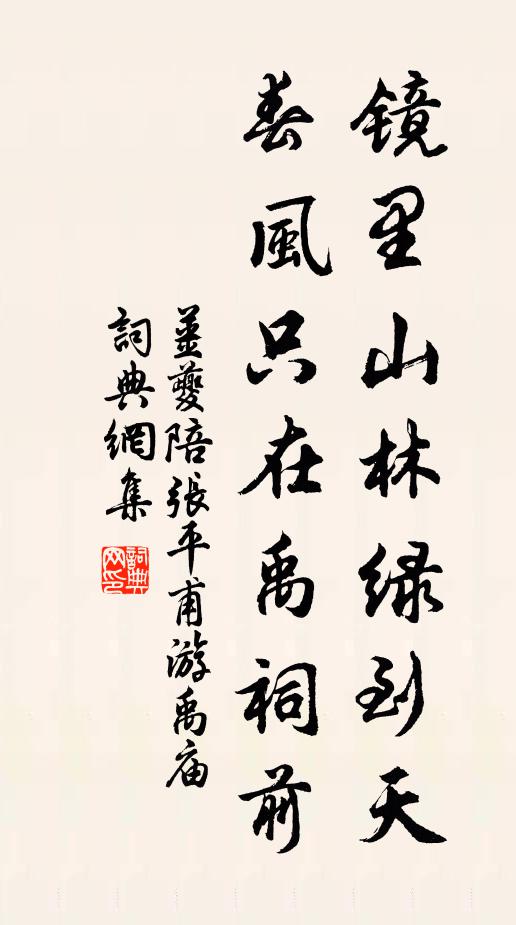 镜里山林绿到天
春風只在禹祠前
姜夔陪張平甫游禹庙
詞典網集
詞典
网印